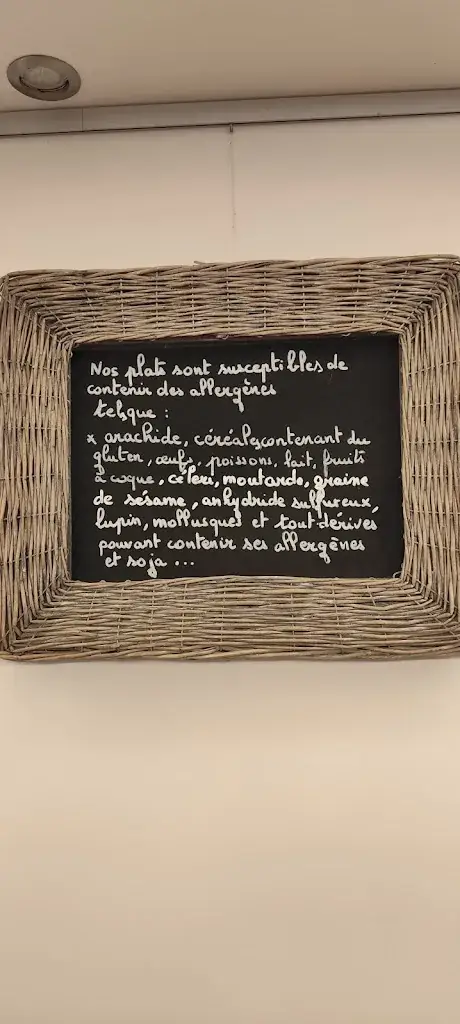 Nos plats sont susceptibles de
contenir des allergènes
telsque :
x arachide, céréales contenant du
gluten, œufs, poissons, lait, fruits
à coque, céleri, moutarde, graine
de sésame, anhydride sulfureux,
lupin, mollusques et tout dérivés
pouvant contenir ses allergènes
et soja ...